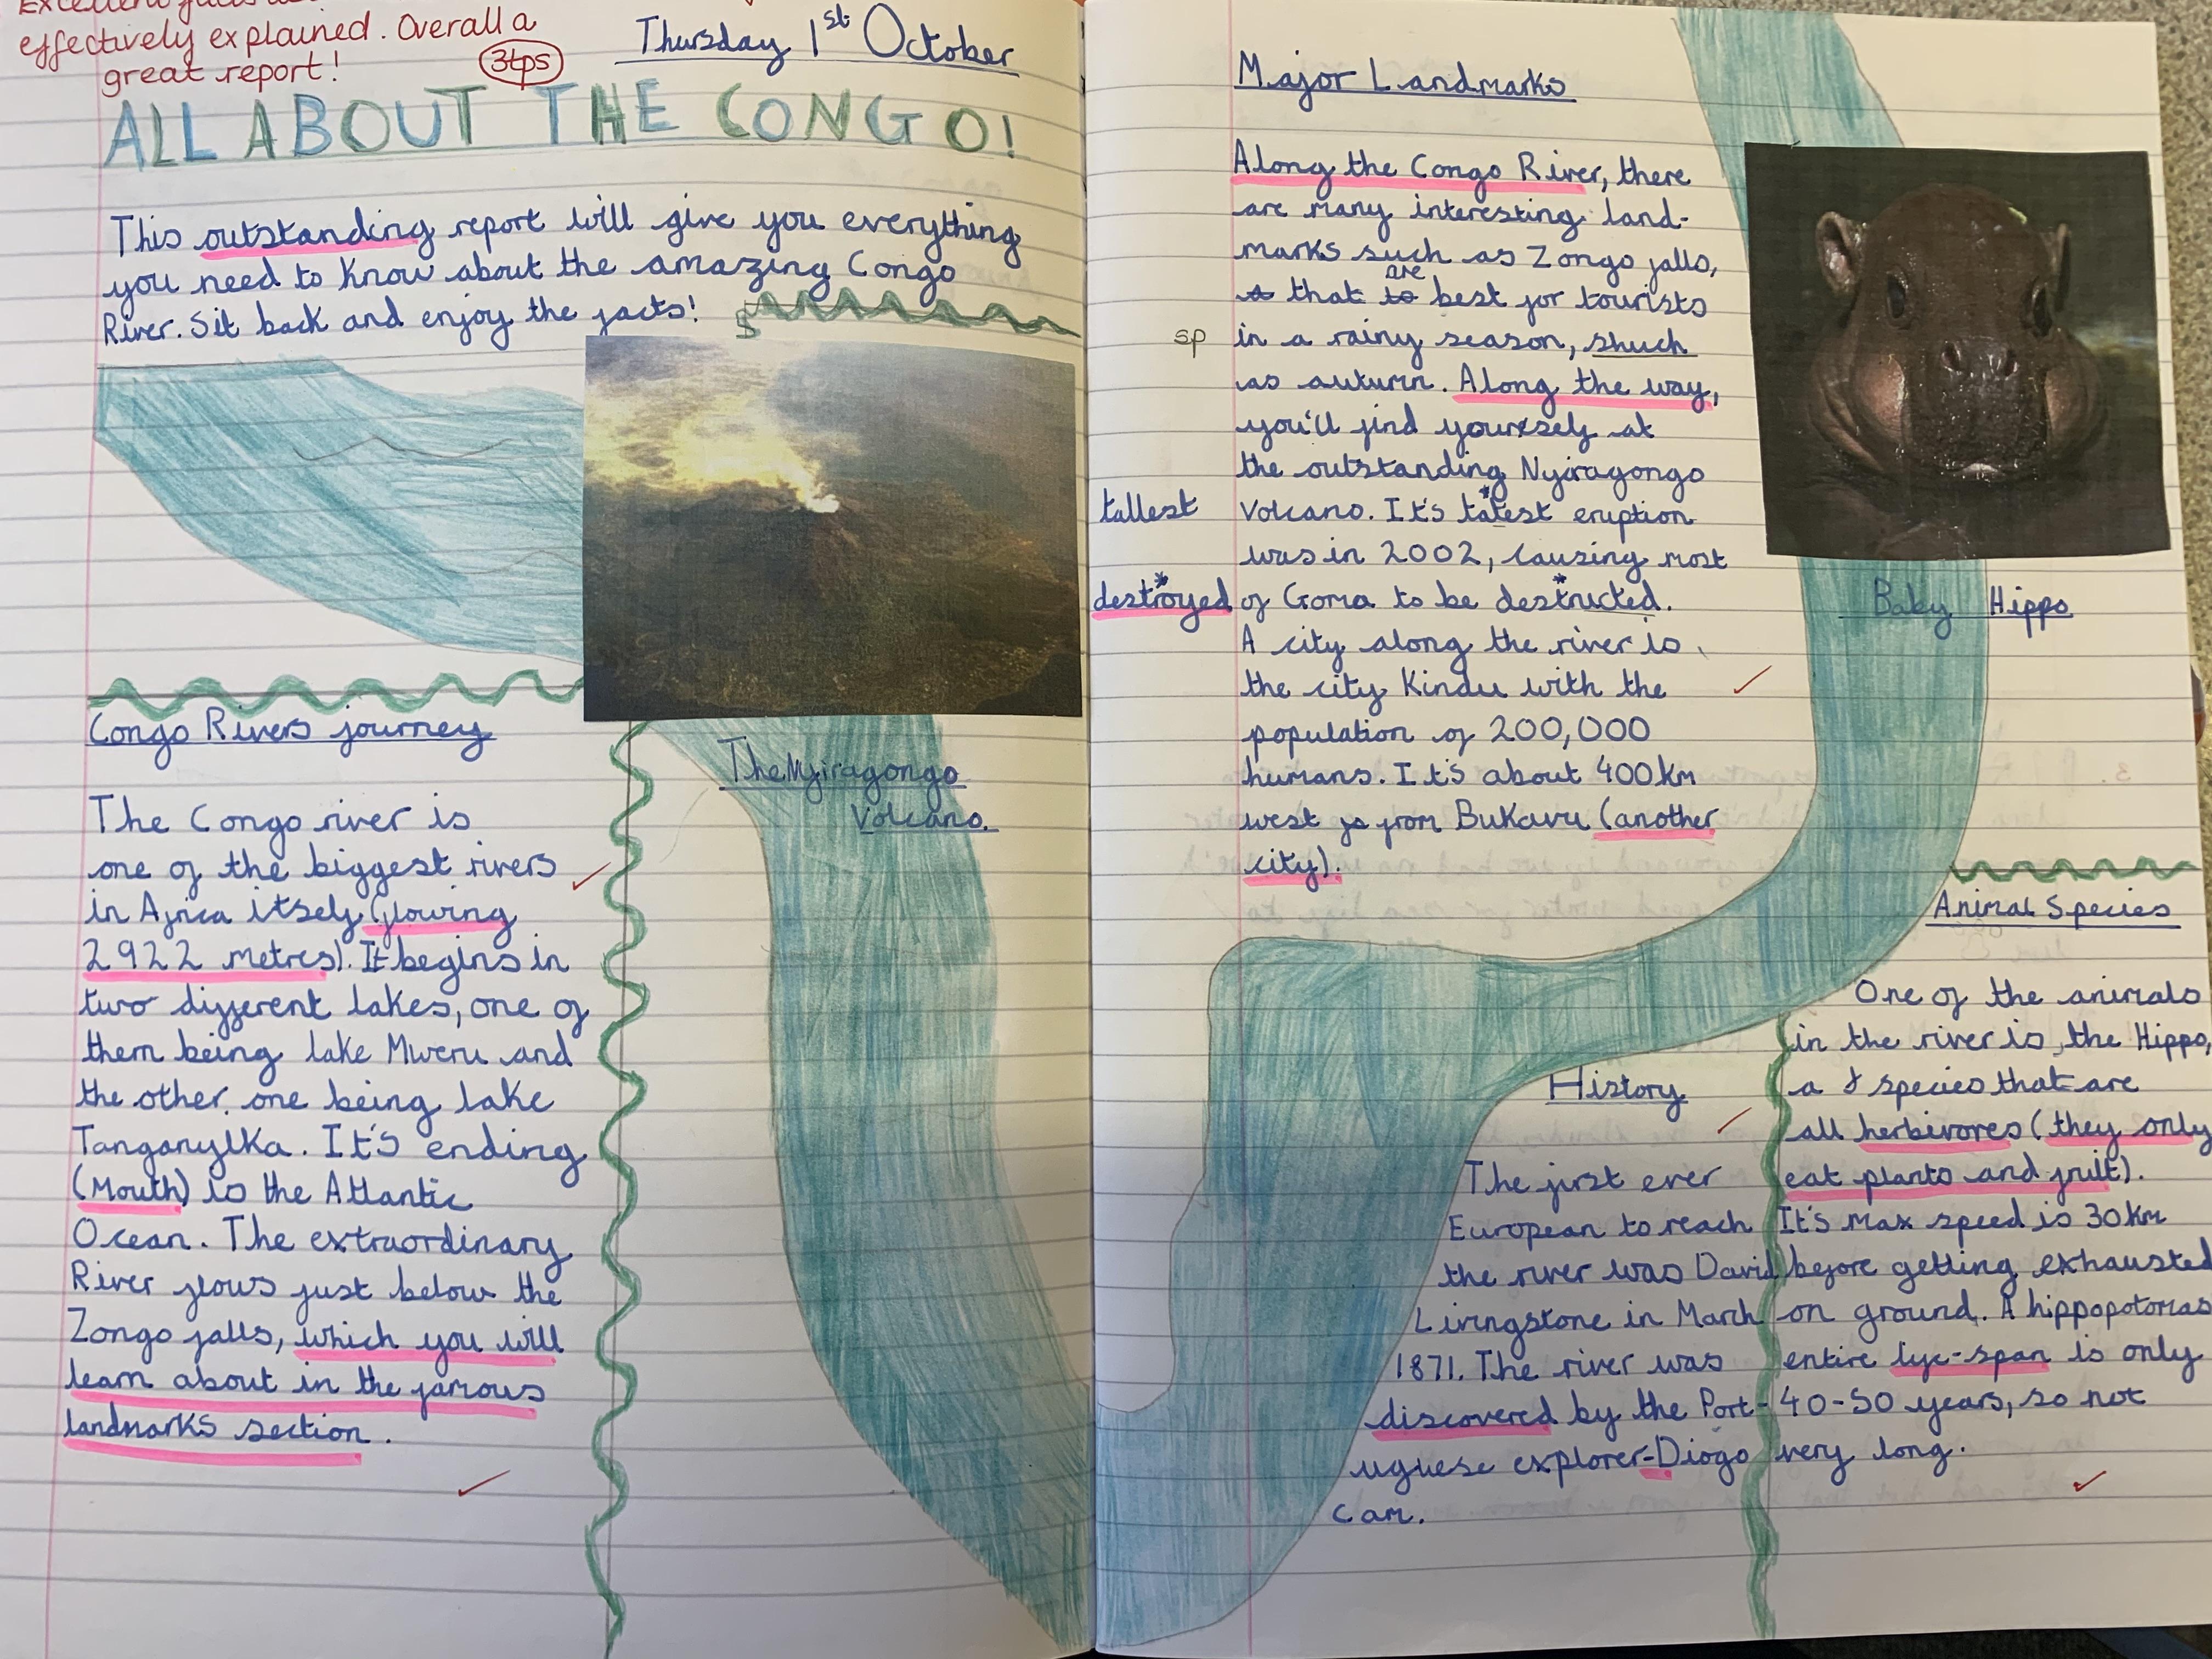 effectively explained. Overall a
great report!
3tps
Thursday 1st October
ALL ABOUT THE CONGO!
This outstanding report will give you everything
you need to know about the amazing Congo
River. Sit back and enjoy the facts!
Congo Rivers journey
The Congo river is
one of the biggest rivers
in Africa itself (flowing
2922 metres). It begins in
two different lakes, one of
them being lake Mweru and
the other one being lake
Tanganylka. It's ending
(Mouth) is the Atlantic
Ocean. The extraordinary
River flows just below the
Zongo falls, which you will
learn about in the famous
landmarks section.
The Nyiragongo
Volcano.
Major Landmarks
Along the Congo River, there
are many interesting land-
marks such as Zongo falls,
that are best for tourists
sp in a rainy season, shuch
as autumn. Along the way,
you'll find yourself at
the outstanding Nyiragongo
tallest Volcano. It's tatest* eruption
was in 2002, causing most
destroyed* of Goma to be destructed*.
A city along the river is
the city Kindu with the
population of 200,000
humans. It's about 400km
west from Bukavu (another
city).
Baby Hippo
History
The first ever
European to reach
the river was David
Livingstone in March
1871. The river was
discovered by the Port-
uguese explorer-Diogo
Cam.
Animal Species
One of the animals
in the river is, the Hippo,
a species that are
all herbivores (they only
eat plants and fruit).
It's max speed is 30km
before getting exhausted
on ground. A hippopotomas
entire lye-span is only
40-50 years, so not
very long.